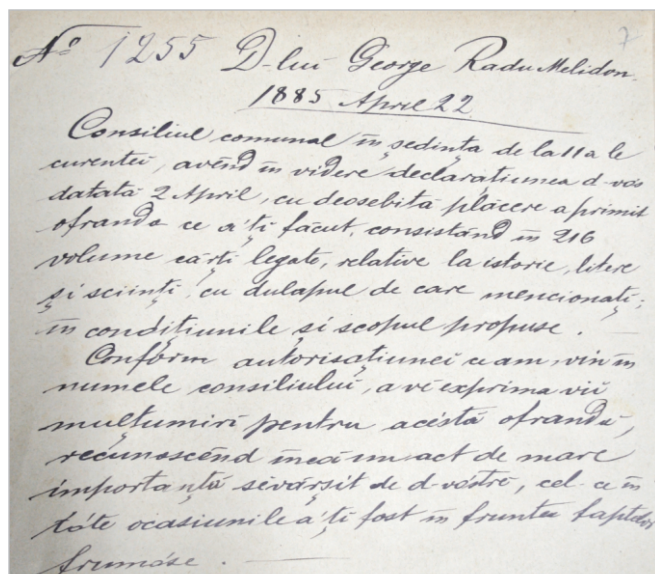 No 1255 D-lui George Radu Melidon.
7
1885 April 22
Consiliul comunal în ședința de la 11 a le
curentei, avênd în videre declarațiunea d-vós
datată 2 April, cu deosebită plăcere a primit
ofranda ce ați făcut, consistând în 216
volume cărți legate, relative la istorie, litere
și sciinți, cu dulapul de care menționați;
în condițiunile și scopul propuse.
Conform autorisațiunei ce am, vin în
numele consiliului, a vĕ exprima vii
mulțumiri pentru acéstă ofrandă,
recunoscênd încă un act de mare
importanță sĕvârșit de d-vóstre, cel ce în
tóte ocasiunile ați fost în fruntea faptelor
frumóse.